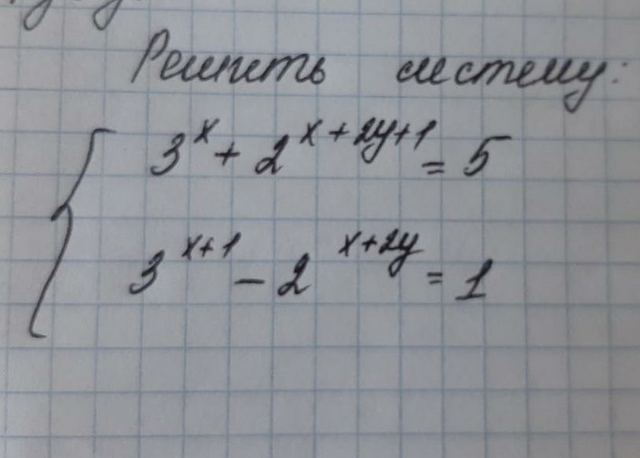 Решить систему:
3^x + 2^{x+2y+1} = 5
3^{x+1} - 2^{x+2y} = 1